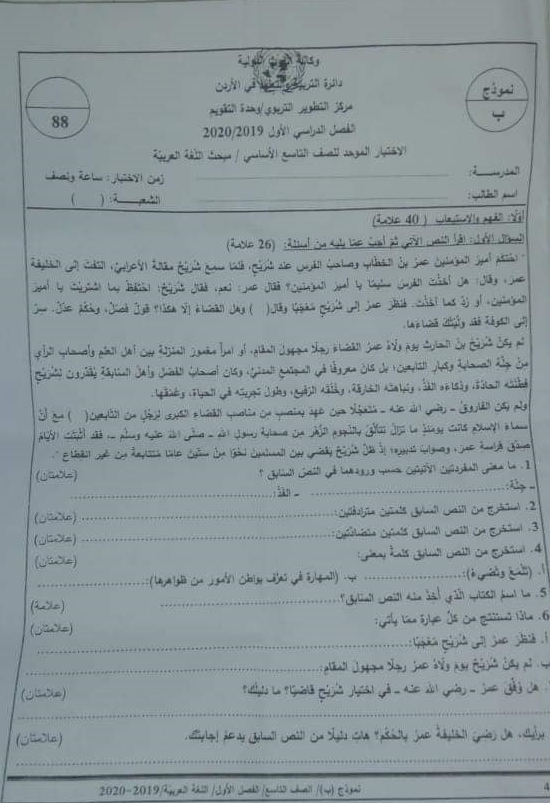 وكالة الغوث الدولية
دائرة التربية والتعليم في الأردن
مركز التطوير التربوي/وحدة التقويم
الفصل الدراسي الأول 2020/2019
الاختبار الموحد للصف التاسع الأساسي / مبحث اللغة العربية
نموذج
ب
88
المدرســـة:
زمن الاختبار: ساعة ونصف
اسم الطالب:
الشعبــــة: ( )
أولًا: الفهم والاستيعاب ( 40 علامة)
السؤال الأول: اقرأ النص الآتي ثمّ أجبْ عمّا يليه من أسئلة: (26 علامة)
" احتكم أميرُ المؤمنين عمرُ بنُ الخطّاب وصاحبُ الفرس عند شُرَيْحٍ، فلمّا سمع شُرَيْحٌ مقالةَ الأعرابيِّ، التفتَ إلى الخليفة
عمرَ، وقال: هل أخذْتَ الفرس سليمًا يا أمير المؤمنين؟ فقال عمر: نعم، فقال شُرَيْحٌ: احتفظ بما اشتريْتَ يا أميرَ
المؤمنين، أو رُدَّ كما أخذْتَ. فنظر عمرُ إلى شُرَيْحٍ مُعْجَبًا وقال( ) وهل القضاءُ إلّا هكذا؟ قولٌ فصْلٌ، وحُكمٌ عدْلٌ. سِرْ
إلى الكوفة فقد ولّيْتُكَ قضاءَها.
لم يكنْ شُرَيْحُ بنُ الحارثِ يومَ ولّاهُ عمرُ القضاءَ رجلًا مجهول المقام، أو امرأً مغمور المنزلةِ بين أهل العلم وأصحاب الرأي
من جِلَّةِ الصحابة وكبار التابعين، بل كان معروفًا في المجتمع المدنيّ، وكان أصحابُ الفضل وأهلُ السابقةِ يُقدّرون لِشُرَيْحٍ
فطنتَه الحادّة، وذكاءَه الفذَّ، ونباهتَه الخارقة، وخُلُقَه الرفيع، وطول تجربته في الحياة، وعمقَها.
ولم يكن الفاروقُ - رضي اللهُ عنه - متعجّلًا حين عَهِد بمنصبٍ من مناصب القضاء الكبرى لرجُلٍ من التابعين( ) مع أنَّ
سماءَ الإسلام كانت يومئذٍ ما تزالُ تتألّقُ بالنّجوم الزُّهر من صحابة رسول الله - صلّى اللهُ عليه وسلّم -، فقد أثْبتَت الأيّامُ
صدْقَ فراسة عمر، وصوابَ تدبيره؛ إذ ظلَّ شُرَيْحٌ يقضي بين المسلمين نحْوًا من ستّين عامًا متتابعة من غير انقطاع ".
1. ما معنى المفردتين الآتيتين حسب ورودهما في النص السابق ؟ (علامتان)
- جِلَّة: ........................ - الفذّ: ........................
2. استخرج من النص السابق كلمتين مترادفتين: ........................ (علامتان)
3. استخرج من النص السابق كلمتين متضادّتين: ........................ (علامتان)
4. استخرج من النص السابق كلمةً بمعنى: (علامتان)
أ. (تلْمعُ وتُضيءُ): .................. ب. (المهارة في تعرُّف بواطن الأمور من ظواهرها): ..................
5. ما اسمُ الكتاب الّذي أُخِذ منه النص السّابق؟ ........................ (علامة)
6. ماذا تستنتج من كلّ عبارة ممّا يأتي: (علامتان)
أ. فنظر عمرُ إلى شُرَيْحٍ مُعْجَبًا: ........................
ب. لم يكنْ شُرَيْحٌ يومَ ولّاهُ عمرُ رجلًا مجهول المقام: ........................
. هل وُفِّقَ عمرُ - رضي اللهُ عنه - في اختيار شُرَيْحٍ قاضيًا؟ ما دليلُك؟ (علامتان)
برأيك، هل رضيَ الخليفةُ عمرُ بالحُكْم؟ هاتِ دليلًا من النص السابق يدعمُ إجابتك. (علامتان)
نموذج (ب)/ الصف التاسع/ الفصل الأول/ اللغة العربية/2019-2020
4